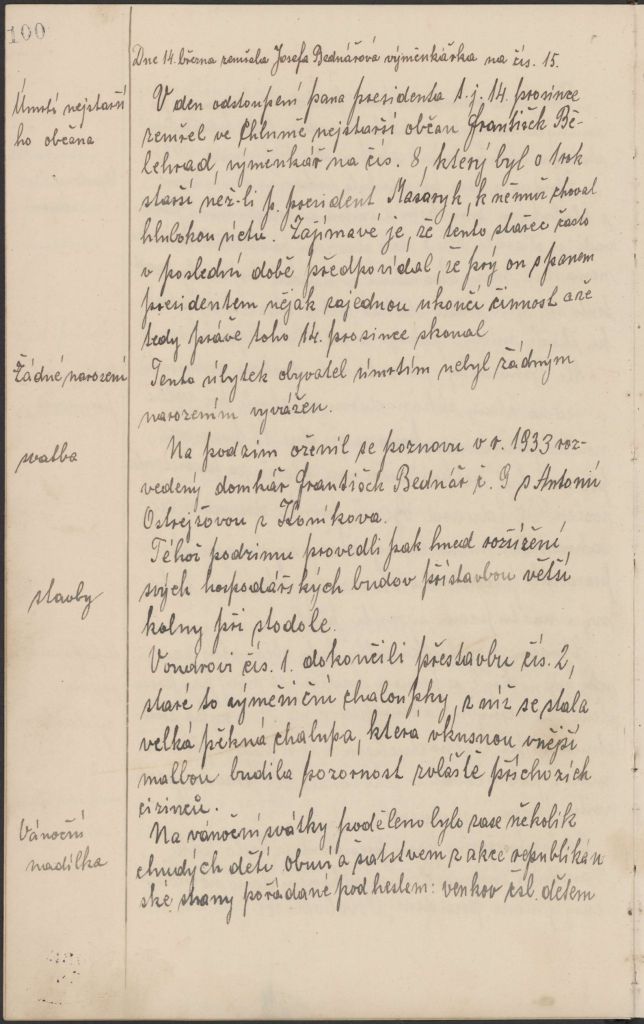 100
Dne 14. března zemřela Josefa Bednářová výměnkářka na čís. 15.
Úmrtí nejstarší
ho občana
V den odstoupení pana presidenta t. j. 14. prosince
zemřel ve Chlumě nejstarší občan František Bě-
lehrad, výměnkář na čís. 8, který byl o 1 rok
starší než-li p. president Masaryk, k němuž choval
hlubokou úctu. Zajímavé je, že tento stařec často
v poslední době předpovídal, že prý on s panem
presidentem nějak zajednou ukončí činnost a že
tedy právě toho 14. prosince skonal
Žádné narození
Tento úbytek obyvatel úmrtím nebyl žádným
narozením vyvážen.
svatba
Na podzim oženil se poznovu v r. 1933 roz-
vedený domkář František Bednář č. 9 s Antonií
Ostrejšovou z
Téhož podzimu provedli pak hned rozšíření
stavby
svých hospodářských budov přístavbou větší
kolny při stodole.
Vondrovi čís. 1. dokončili přestavbu čís. 2,
staré to výměniční chaloupky, z níž se stala
velká pěkná chalupa, která vkusnou vnější
malbou budila pozornost zvláště příchozích
cizinců.
Vánoční
nadílka
Na vánoční svátky poděleno bylo zase několik
chudých dětí obuví a šatstvem z akce republikán
ské strany pořádané pod heslem: venkov čsl. dětem